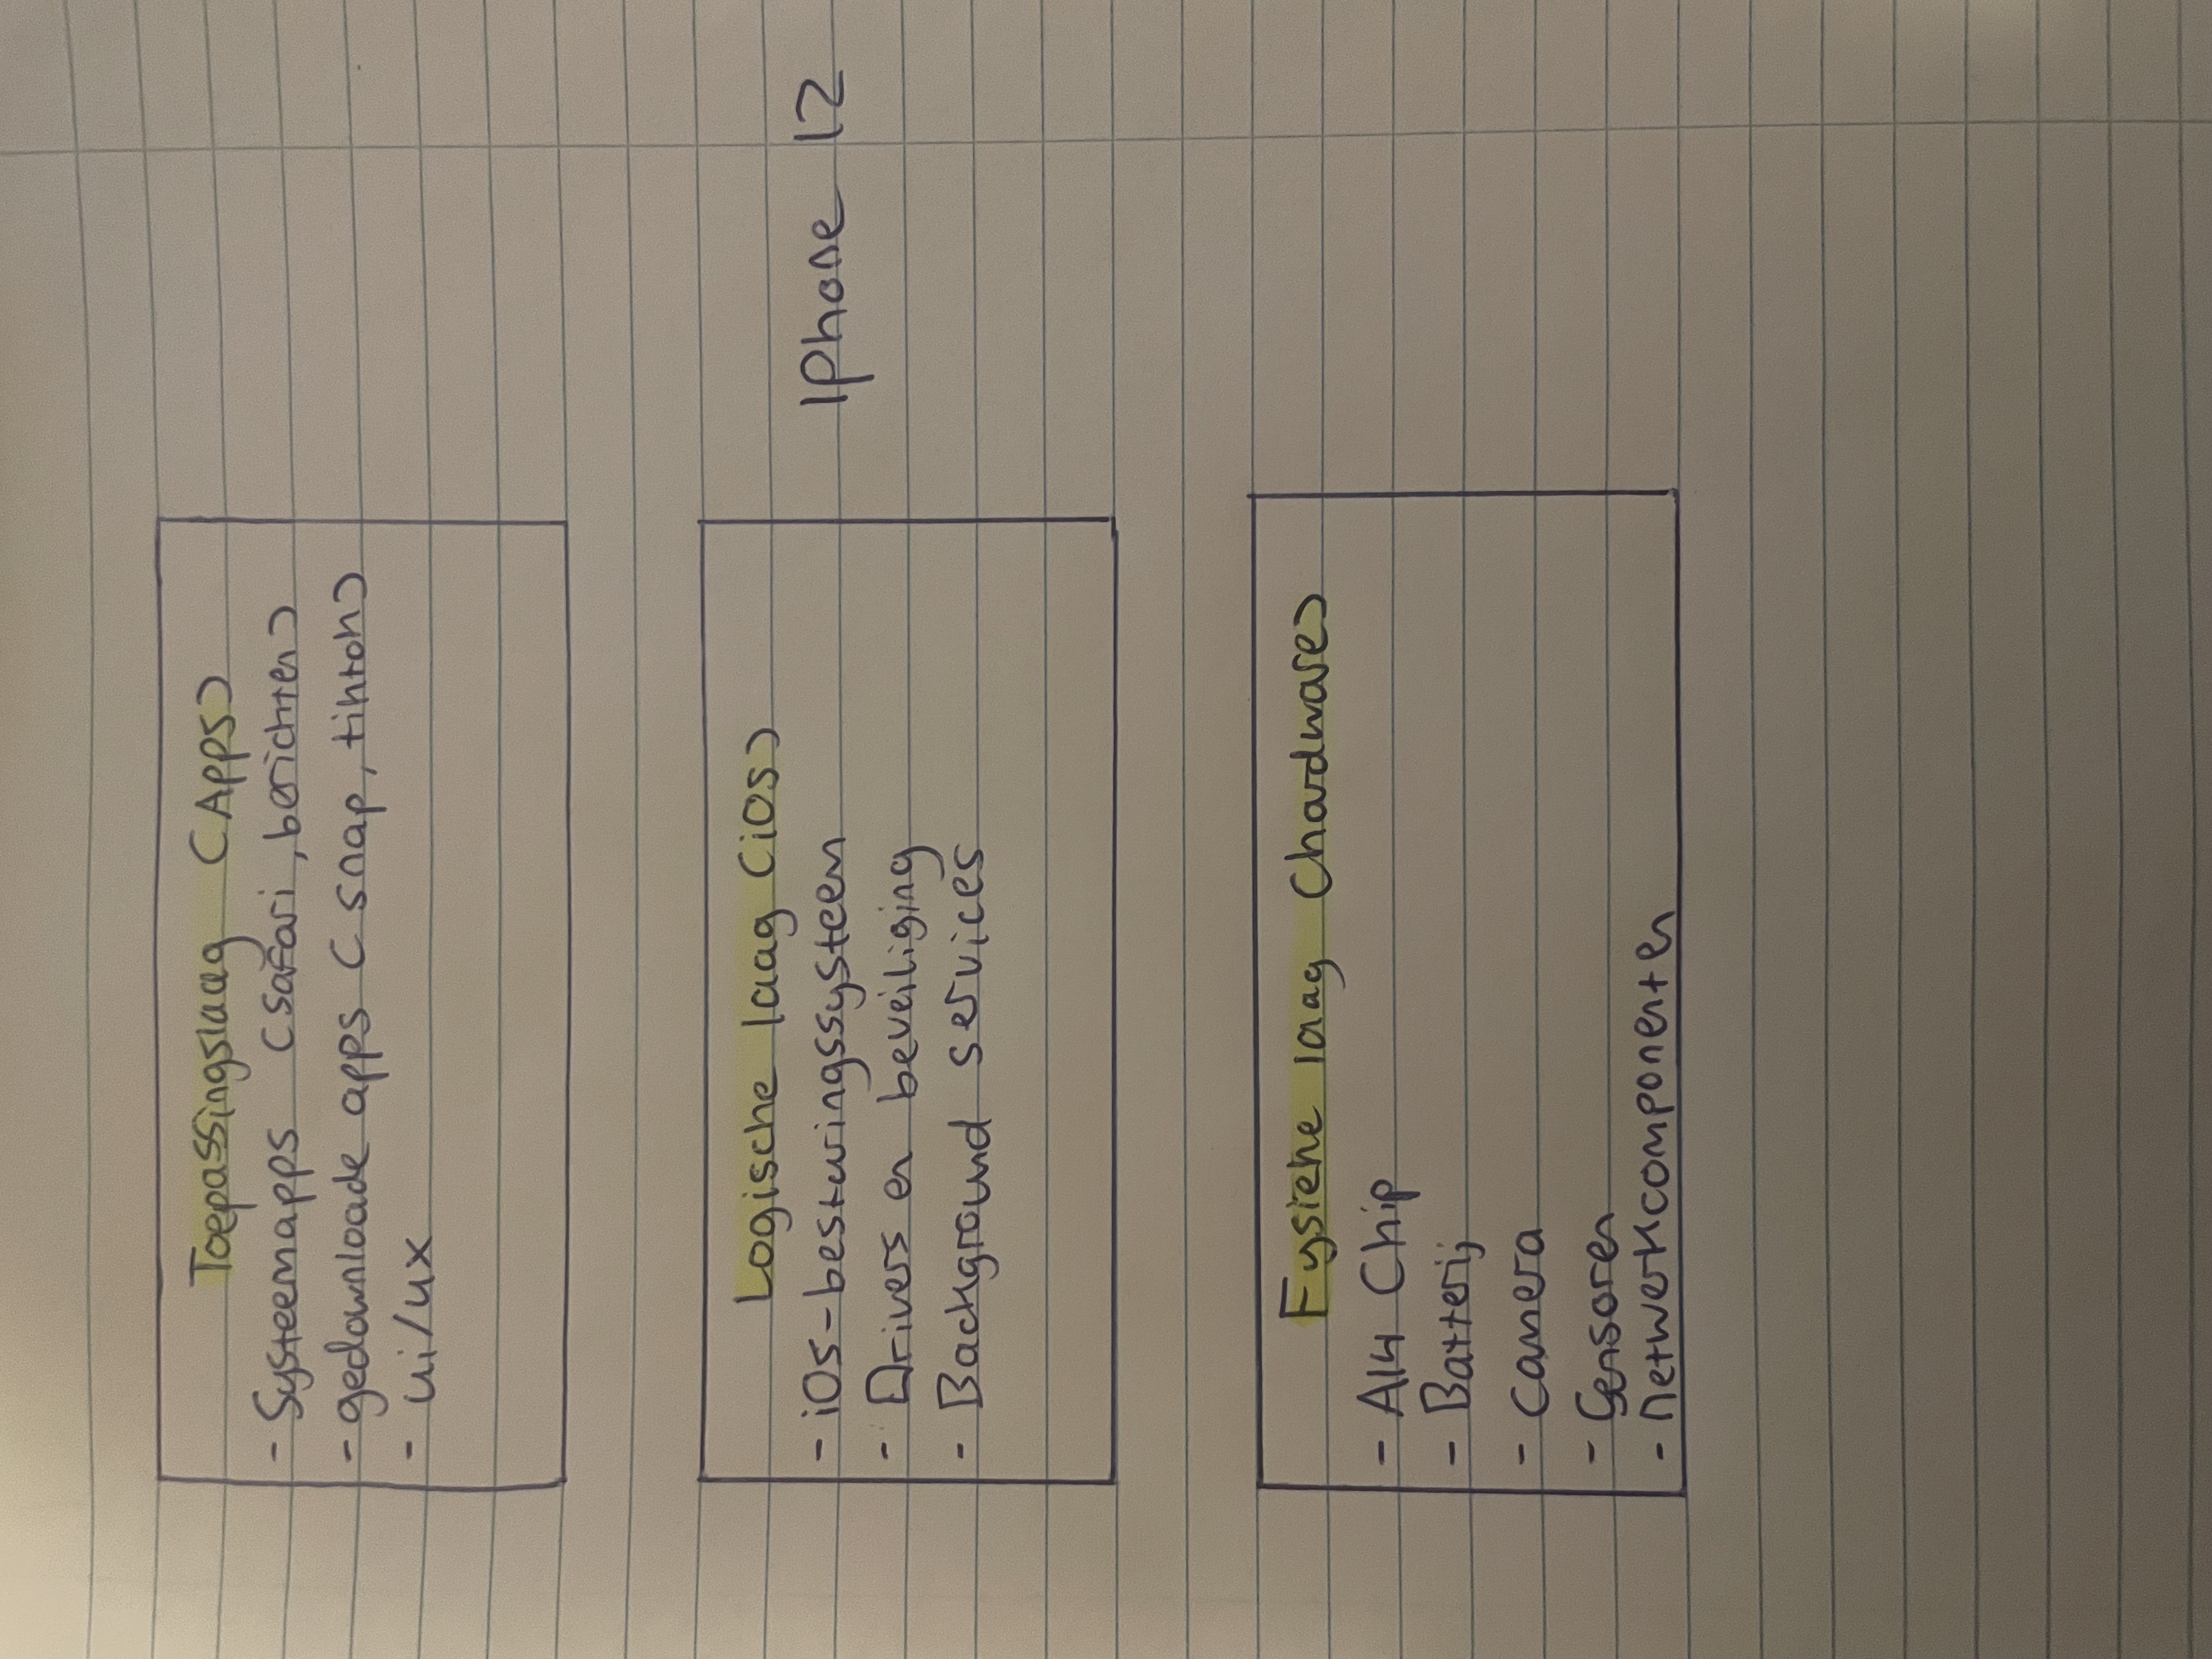 Toepassingslaag (Apps)
- Systeemapps (Safari, berichten)
- gedownloade apps (snap, tiktok)
- ui/ux
Logische laag (iOS)
- iOS-besturingssysteem
- Drivers en beveiliging
- Background services
IPhone 12
Fysieke laag (hardware)
- A14 Chip
- Batterij
- Camera
- Sensoren
- netwerkcomponenten